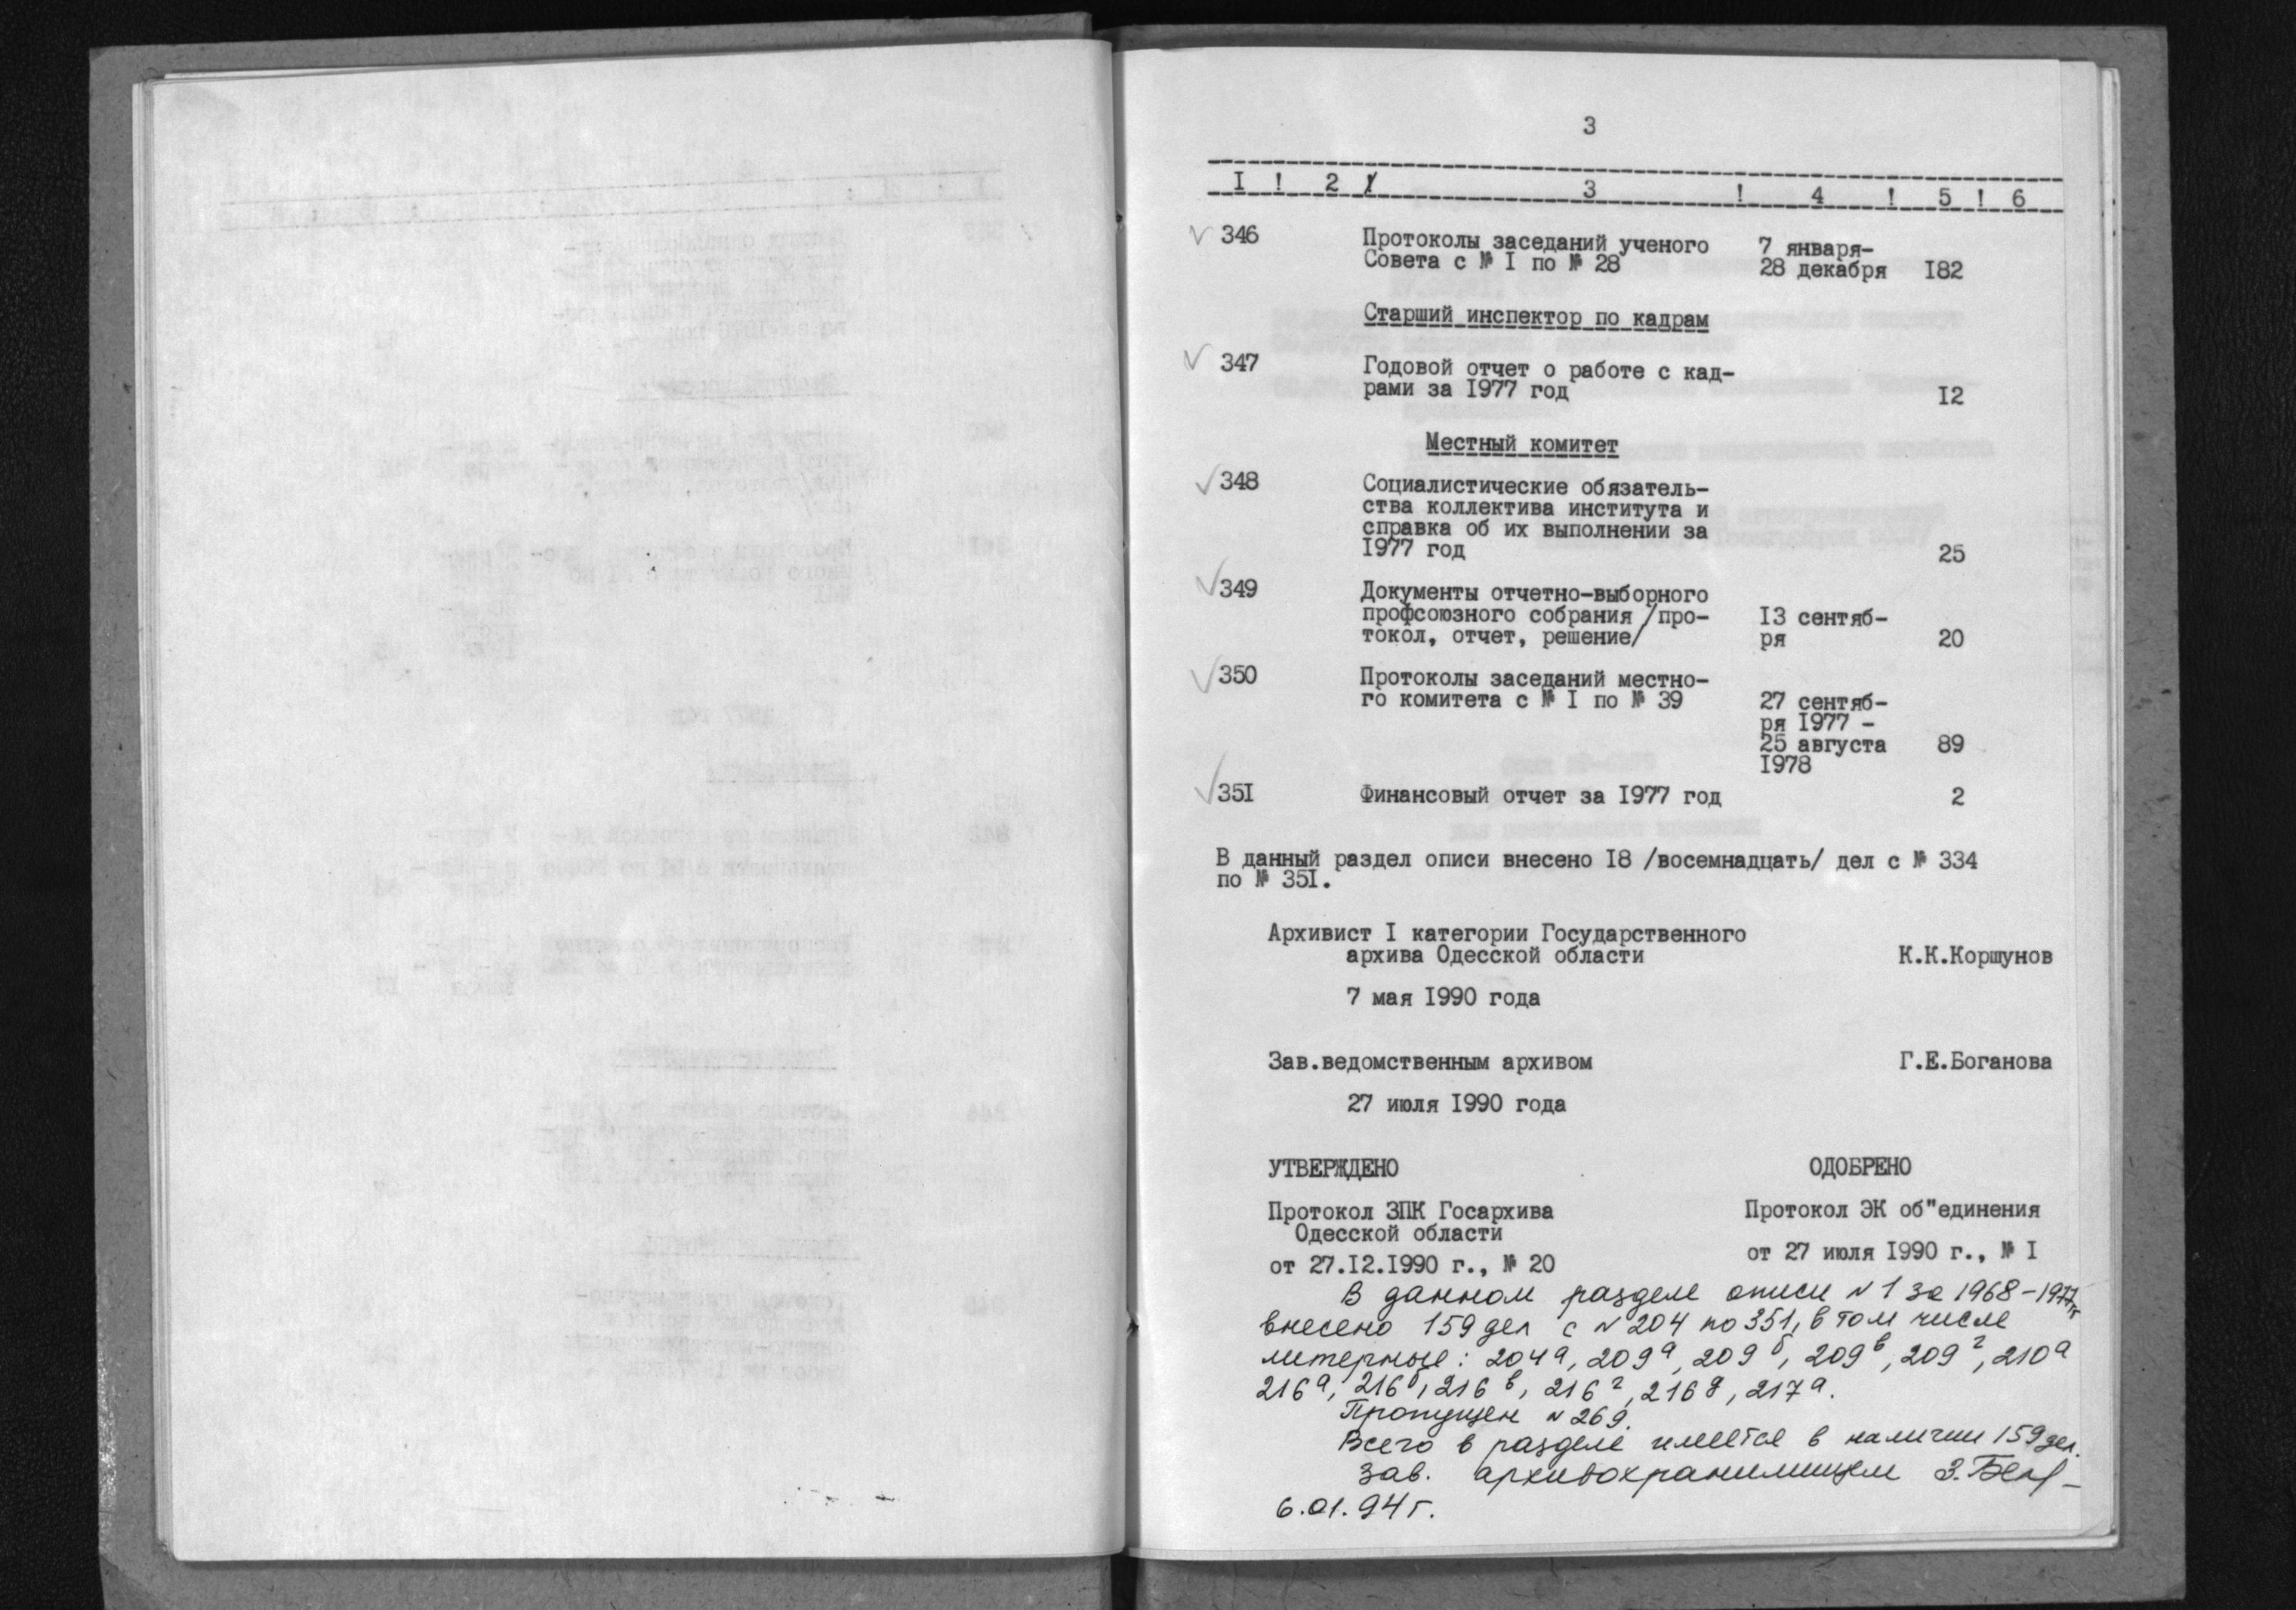 3
I ! 2 ! 3 ! 4 ! 5 ! 6
346 Протоколы заседаний ученого 7 января-
Совета с № I по № 28 28 декабря I82
Старший инспектор по кадрам
347 Годовой отчет о работе с кад-
рами за I977 год I2
Местный комитет
348 Социалистические обязатель-
ства коллектива института и
справка об их выполнении за
I977 год 25
349 Документы отчетно-выборного
профсоюзного собрания /про- I3 сентяб-
токол, отчет, решение/ ря 20
350 Протоколы заседаний местно-
го комитета с № I по № 39 27 сентяб-
ря I977 -
25 августа 89
I978
35I Финансовый отчет за I977 год 2
В данный раздел описи внесено I8 /восемнадцать/ дел с № 334
по № 35I.
Архивист I категории Государственного
архива Одесской области К.К.Коршунов
7 мая I990 года
Зав.ведомственным архивом Г.Е.Боганова
27 июля I990 года
УТВЕРЖДЕНО ОДОБРЕНО
Протокол ЭПК Госархива Протокол ЭК об"единения
Одесской области
от 27.I2.I990 г., № 20 от 27 июля I990 г., № I
В данном разделе описи № 1 за 1968-1977 гг
внесено 159 дел с № 204 по 351, в том числе
литерные: 204а, 209а, 209б, 209в, 209г, 210а
216а, 216б, 216в, 216г, 216д, 217а.
Пропущен № 269.
Всего в разделе имеется в наличии 159 дел.
Зав. архивохранилищем З.
6.01.94 г.